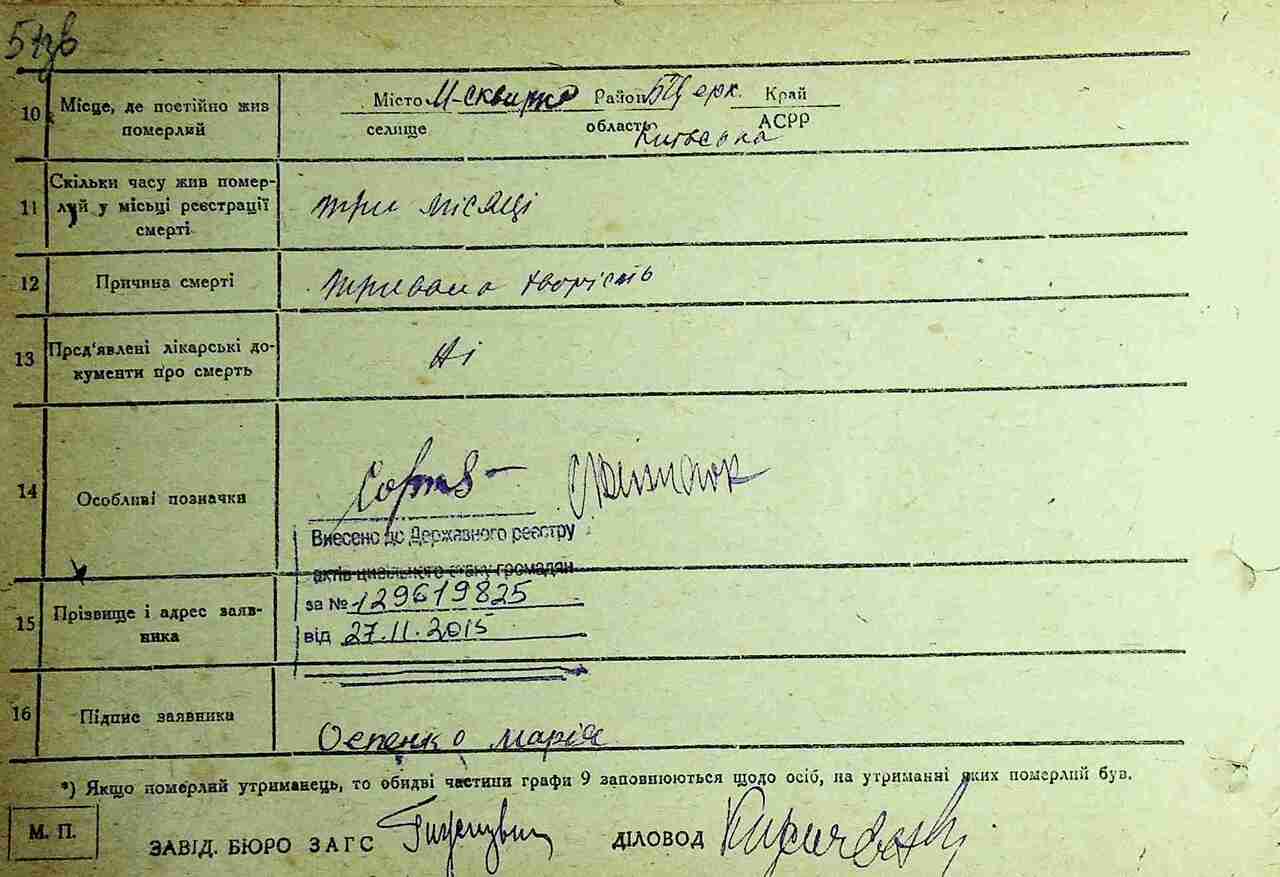 10 Місце, де постійно жив померлий
Місто М-сквирка Район БЦерк. Край
селище область Київська АСРР
11 Скільки часу жив померлий у місьці реєстрації смерті
три місяці
12 Причина смерті
тривала хворість
13 Пред'явлені лікарські документи про смерть
Ні
14 Особливі позначки
Внесено до Державного реєстру
актів цивільного стану громадян
за № 129619825
від 27.11.2015
15 Прізвище і адрес заявника
16 Підпис заявника
Оспенко марія
*) Якщо померлий утриманець, то обидві частини графи 9 заповнюються щодо осіб, на утриманні яких померлий був.
М. П.
ЗАВІД. БЮРО ЗАГС
ДІЛОВОД